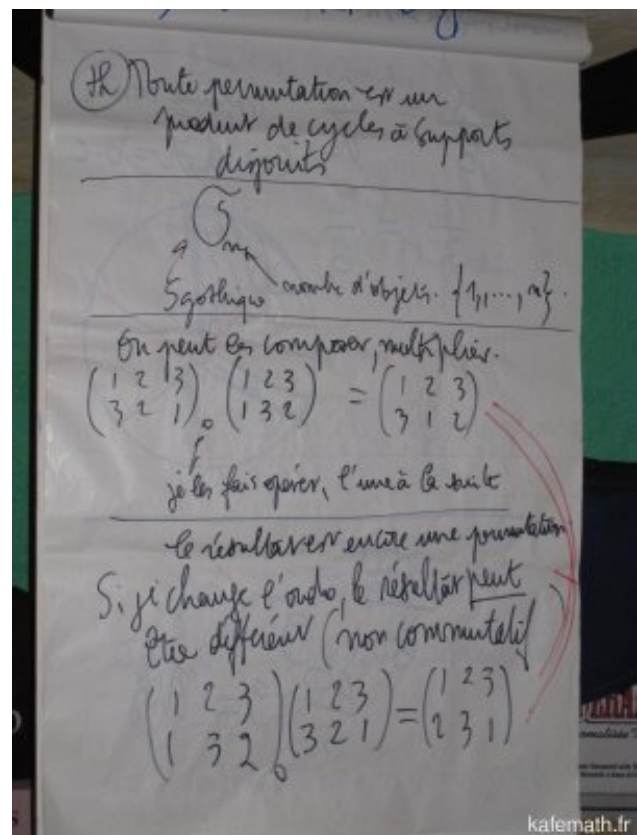 th Toute permutation est un
produit de cycles à supports
disjoints
S n
S gothique nombre d'objets. {1, ..., n}.
On peut les composer, multiplier.
(1 2 3) (1 2 3) = (1 2 3)
(3 2 1) o (1 3 2) (3 1 2)
je les fais opérer, l'une à la suite
le résultat est encore une permutation
Si je change l'ordre, le résultat peut
être différent (non commutatif)
(1 2 3) (1 2 3) = (1 2 3)
(1 3 2) o (3 2 1) (2 3 1)
kafemath.fr